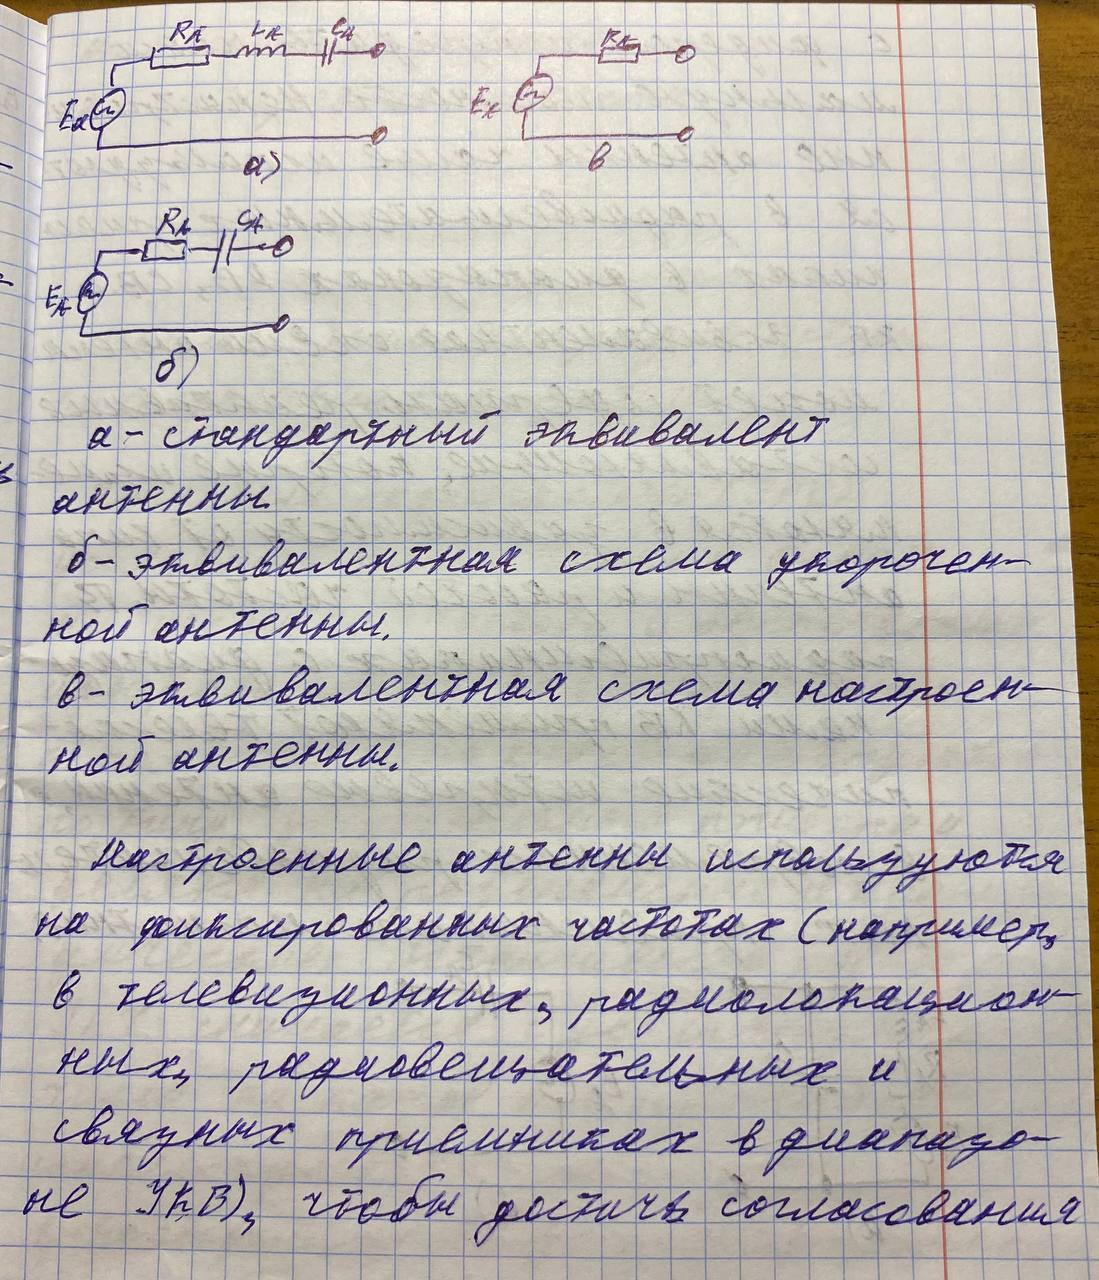 R_A L_A C_A
E_A
а)
R_A
E_A
в
R_A C_A
E_A
б)
а - стандартный эквивалент
антенны.
б - эквивалентная схема укорочен-
ной антенны.
в - эквивалентная схема настроен-
ной антенны.
Настроенные антенны используются
на фиксированных частотах (например,
в телевизионных, радиолокацион-
ных, радиовещательных и
связных приемниках в диапазо-
не УКВ), чтобы достичь согласования